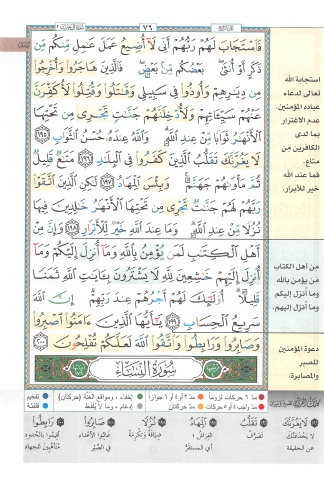 ٧٦
فَاسْتَجَابَ لَهُمْ رَبُّهُمْ أَنِّى لَآ أُضِيعُ عَمَلَ عَـٰمِلٍ مِّنكُم مِّن
ذَكَرٍ أَوْ أُنثَىٰ ۖ بَعْضُكُم مِّنۢ بَعْضٍ ۖ فَالَّذِينَ هَاجَرُوا۟ وَأُخْرِجُوا۟
مِن دِيَـٰرِهِمْ وَأُوذُوا۟ فِى سَبِيلِى وَقَـٰتَلُوا۟ وَقُتِلُوا۟ لَأُكَفِّرَنَّ
عَنْهُمْ سَيِّـَٔاتِهِمْ وَلَأُدْخِلَنَّهُمْ جَنَّـٰتٍ تَجْرِى مِن تَحْتِهَا
الْأَنْهَـٰرُ ثَوَابًا مِّنْ عِندِ اللَّهِ ۗ وَاللَّهُ عِندَهُۥ حُسْنُ الثَّوَابِ ١٩٥
لَا يَغُرَّنَّكَ تَقَلُّبُ الَّذِينَ كَفَرُوا۟ فِى الْبِلَـٰدِ ١٩٦ مَتَـٰعٌ قَلِيلٌ
ثُمَّ مَأْوَىٰهُمْ جَهَنَّمُ ۚ وَبِئْسَ الْمِهَادُ ١٩٧ لَـٰكِنِ الَّذِينَ اتَّقَوْا۟
رَبَّهُمْ لَهُمْ جَنَّـٰتٌ تَجْرِى مِن تَحْتِهَا الْأَنْهَـٰرُ خَـٰلِدِينَ فِيهَا
نُزُلًا مِّنْ عِندِ اللَّهِ ۗ وَمَا عِندَ اللَّهِ خَيْرٌ لِّلْأَبْرَارِ ١٩٨ وَإِنَّ مِنْ
أَهْلِ الْكِتَـٰبِ لَمَن يُؤْمِنُ بِاللَّهِ وَمَآ أُنزِلَ إِلَيْكُمْ وَمَآ
أُنزِلَ إِلَيْهِمْ خَـٰشِعِينَ لِلَّهِ لَا يَشْتَرُونَ بِـَٔايَـٰتِ اللَّهِ ثَمَنًا
قَلِيلًا ۗ أُو۟لَـٰٓئِكَ لَهُمْ أَجْرُهُمْ عِندَ رَبِّهِمْ ۗ إِنَّ اللَّهَ
سَرِيعُ الْحِسَابِ ١٩٩ يَـٰٓأَيُّهَا الَّذِينَ ءَامَنُوا۟ اصْبِرُوا۟
وَصَابِرُوا۟ وَرَابِطُوا۟ وَاتَّقُوا۟ اللَّهَ لَعَلَّكُمْ تُفْلِحُونَ ٢٠٠
سُورَةُ النِّسَاءِ
استجابة الله
تعالى لدعاء
عباده المؤمنين.
عدم الاغترار
بما لدى
الكافرين من
متاع.
فما عند الله
خير للأبرار.
من أهل الكتاب
من يؤمن بالله
وما أنزل إليكم
وما أنزل إليهم.
دعوة المؤمنين
للصبر
والمصابرة.
مدّ ٦ حركات لزوماً
مدّ ٢ أو ٤ أو ٦ جوازاً
إخفاء، ومواقع الغنّة (حركتان)
تفخيم
مدّ واجب ٤ أو ٥ حركات
مدّ حركتان
إدغام، وما لا يُلفظ
قلقلة
لَا يَغُرَّنَّكَ
لا يخدعنّك عن الحقيقة
تَقَلُّبُ
تصرّف
الْمِهَادُ
الفراش؛ أي المستقرّ
نُزُلًا
ضيافة وتكرمة
صَابِرُوا
غالبوا الأعداء في الصبر
رَابِطُوا
أقيموا بالحدود متأهّبين للجهاد